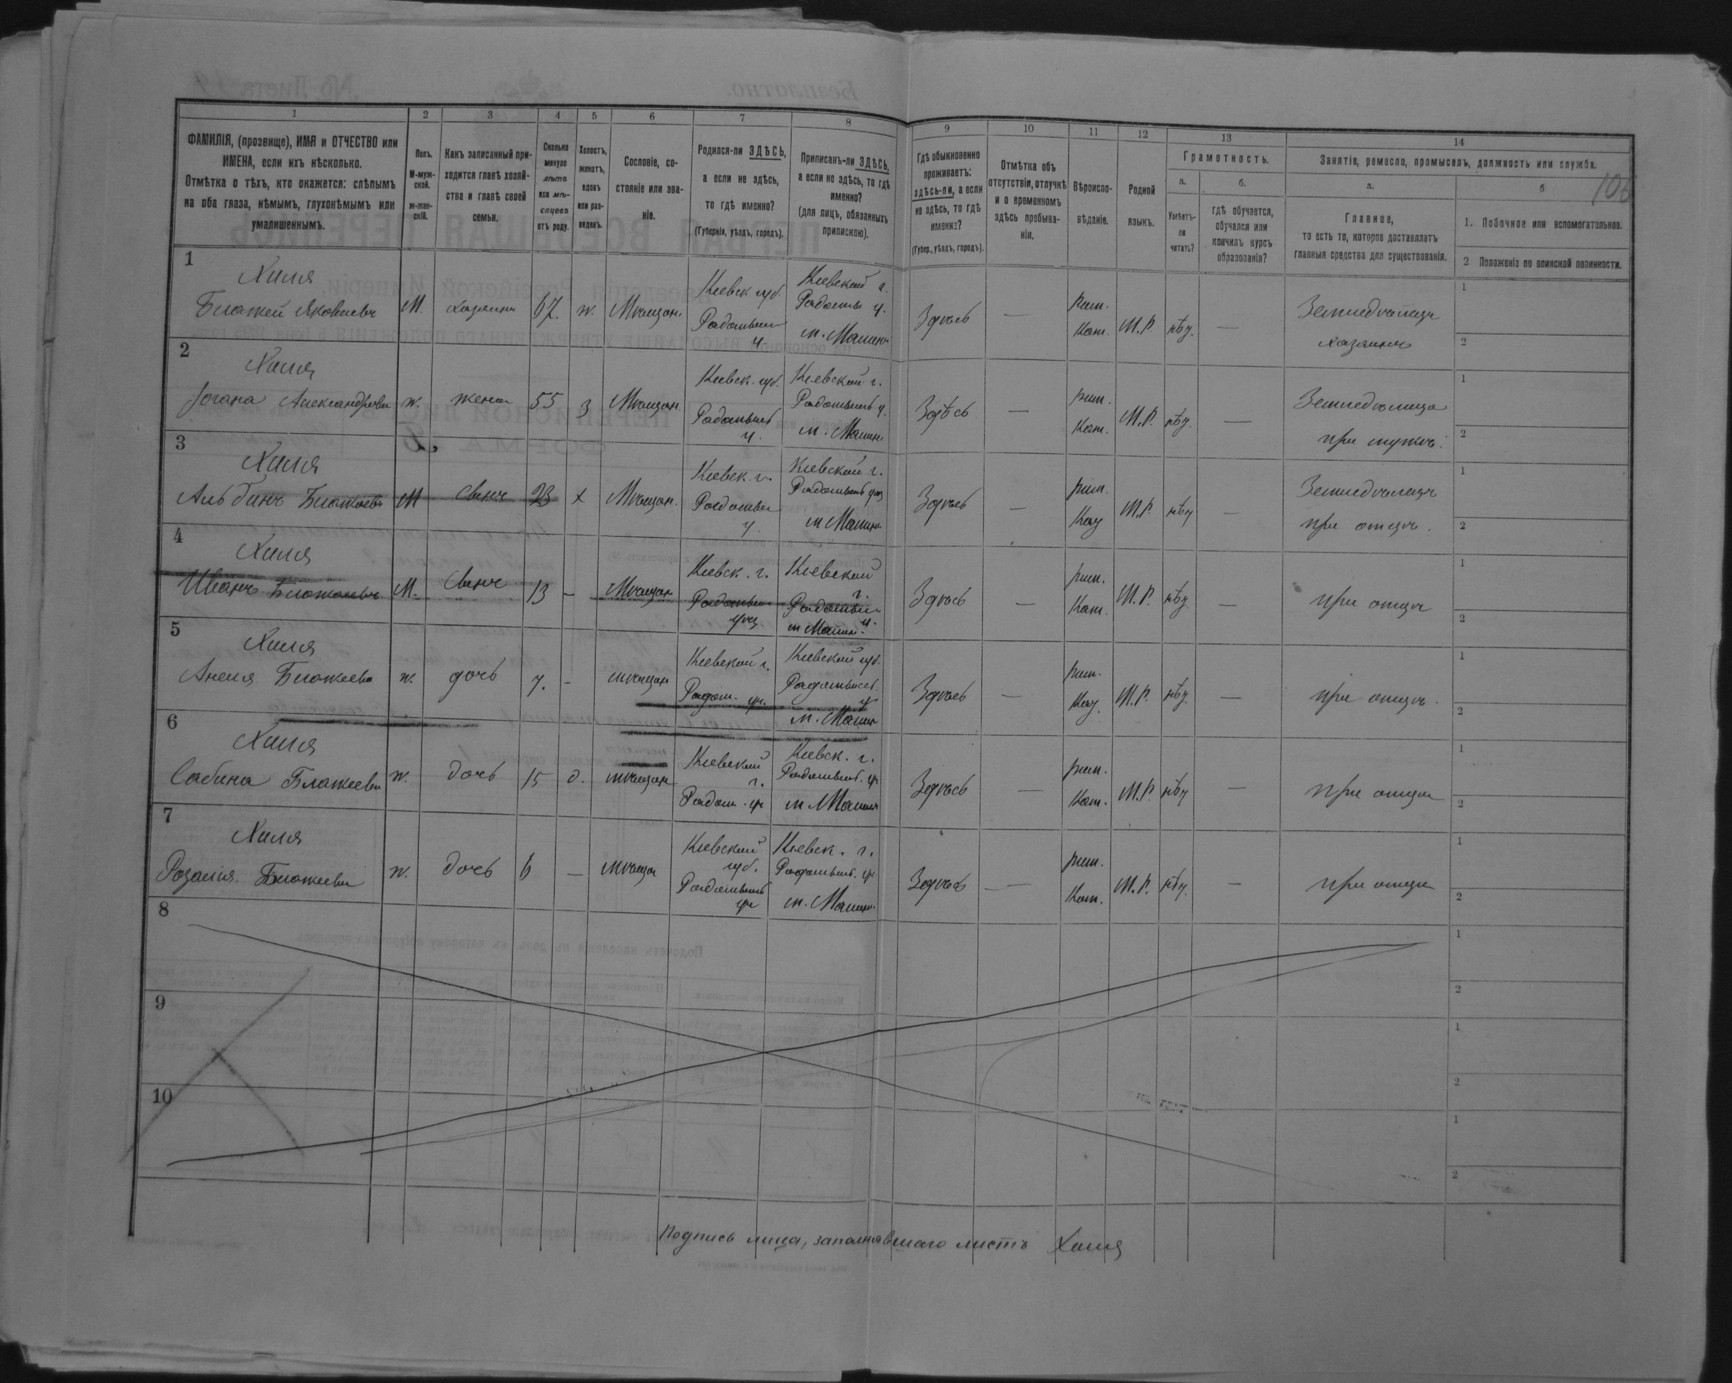 106
1 2 3 4 5 6 7 8 9 10 11 12 13 14
ФАМИЛІЯ, (прозвище), ИМЯ и ОТЧЕСТВО или ИМЕНА, если ихъ нѣсколько.
Отмѣтка о тѣхъ, кто окажется: слѣпымъ на оба глаза, нѣмымъ, глухонѣмымъ или умалишеннымъ.
Полъ.
М-мужской.
ж-женскій.
Какъ записанный приходится главѣ хозяйства и главѣ своей семьи.
Сколько минуло лѣтъ или мѣсяцевъ отъ роду.
Холостъ, женатъ, вдовъ или разведенъ.
Сословіе, состояніе или званіе.
Родился-ли ЗДѢСЬ, а если не здѣсь, то гдѣ именно?
(Губернія, уѣздъ, городъ).
Приписанъ-ли ЗДѢСЬ, а если не здѣсь, то гдѣ именно?
(для лицъ, обязанныхъ припискою).
Гдѣ обыкновенно проживаетъ: здѣсь-ли, а если не здѣсь, то гдѣ именно?
(Губер., уѣздъ, городъ).
Отмѣтка объ отсутствіи, отлучкѣ и о временномъ здѣсь пребываніи.
Вѣроисповѣданіе.
Родной языкъ.
Грамотность.
а. Умѣетъ-ли читать?
б. гдѣ обучается, обучался или кончилъ курсъ образованія?
Занятіе, ремесло, промыселъ, должность или служба.
а. Главное, то есть то, которое доставляетъ главныя средства для существованія.
б
1. Побочное или вспомогательное.
2 Положеніе по воинской повинности.
1 Халя Блажей Яковлевъ М. хозяинъ 67. ж. Мѣщан. Кіевск. губ. Радомысл у. Кіевской г. Радомы у. м. Малин Здѣсь — рим. Кат. М.Р. нѣу. — Земледѣлецъ хозяинъ
2 Халя Александров ж. жена 55 З Мѣщан Кіевск. губ. Радомысл у. Кіевской г. Радомысл у. м. Малин Здѣсь — рим. Кат. М.Р. нѣу. — Земледѣлица при мужѣ.
3 Халя Альбинъ Блажеевъ М сынъ 23 х Мѣщан. Кіевск. г. Радомысл у. Кіевской г. Радомысл уѣз м Малин Здѣсь — рим. Кат М.Р. нѣу Земледѣлецъ при отцѣ.
4 Халя Иванъ Блажеевъ М. сынъ 13 — Мѣщан Кіевск. г. Радомысл уѣз Кіевской г. Радомысл у. м Малин. Здѣсь — рим. Кат. М.Р. нѣу — при отцѣ
5 Халя Анеля Блажеева ж. дочь 7. — мѣщан Кіевской г. Радом. у. Кіевской губ. Радомысл. у м. Малин Здѣсь — рим. Кат. М.Р. нѣу — при отцѣ.
6 Халя Сабина Блажеева ж. дочь 15 д. мѣщан Кіевской г. Радом. у Кіевск. г. Радомысл. у м Малин Здѣсь — рим. Кат. М.Р. нѣу — при отцѣ
7 Халя Розалія Блажеева ж. дочь 6 — мѣщан Кіевской губ. Радомысл у Кіевск. г. Радомысл. у м. Малин Здѣсь — рим. Кат. М.Р. нѣу. — при отцѣ
8
9
10
Подпись лица, заполнявшаго листъ Халя